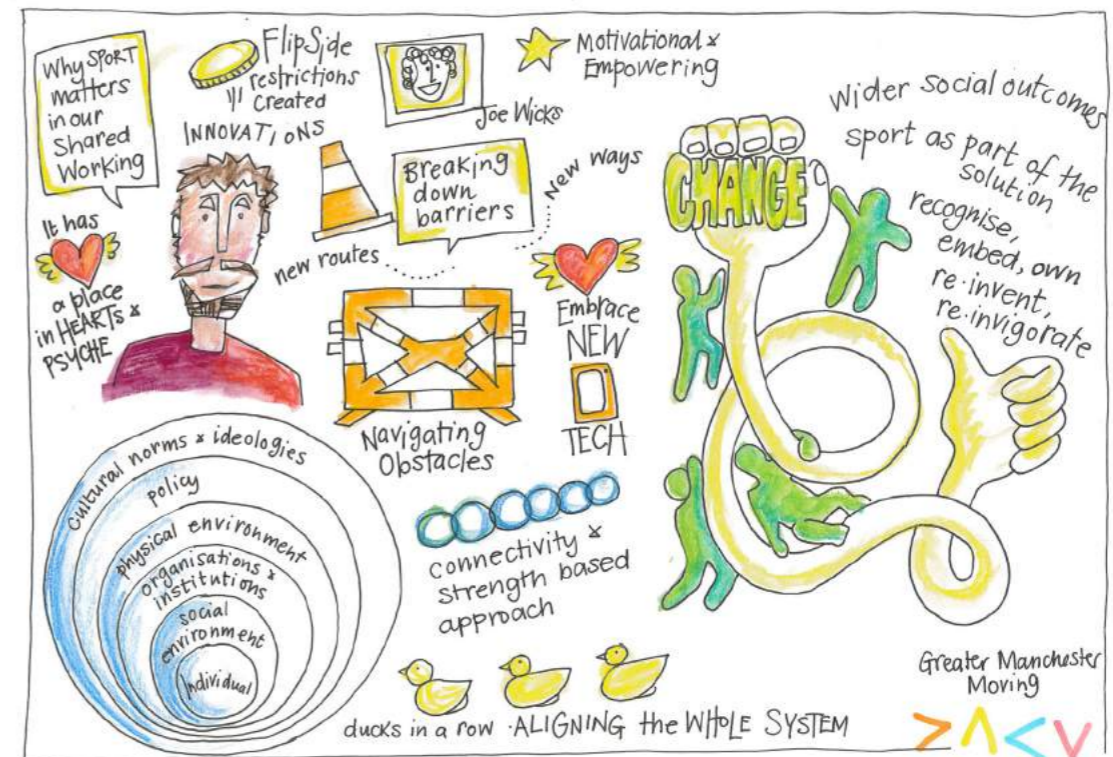 Why SPORT
matters
in our
Shared
Working
FlipSide
restrictions
Created
INNOVATIONS
Joe Wicks
Motivational &
Empowering
It has
a place
in HEARTS &
PSYCHE
Breaking
down
barriers
new routes
New ways
Navigating
Obstacles
Embrace
NEW
TECH
CHANGE
wider social outcomes
sport as part of the
solution
recognise,
embed, own
re·invent,
re·invigorate
cultural norms & ideologies
policy
physical environment
organisations &
institutions
social
environment
Individual
connectivity &
strength based
approach
ducks in a row · ALIGNING the WHOLE SYSTEM
Greater Manchester
Moving